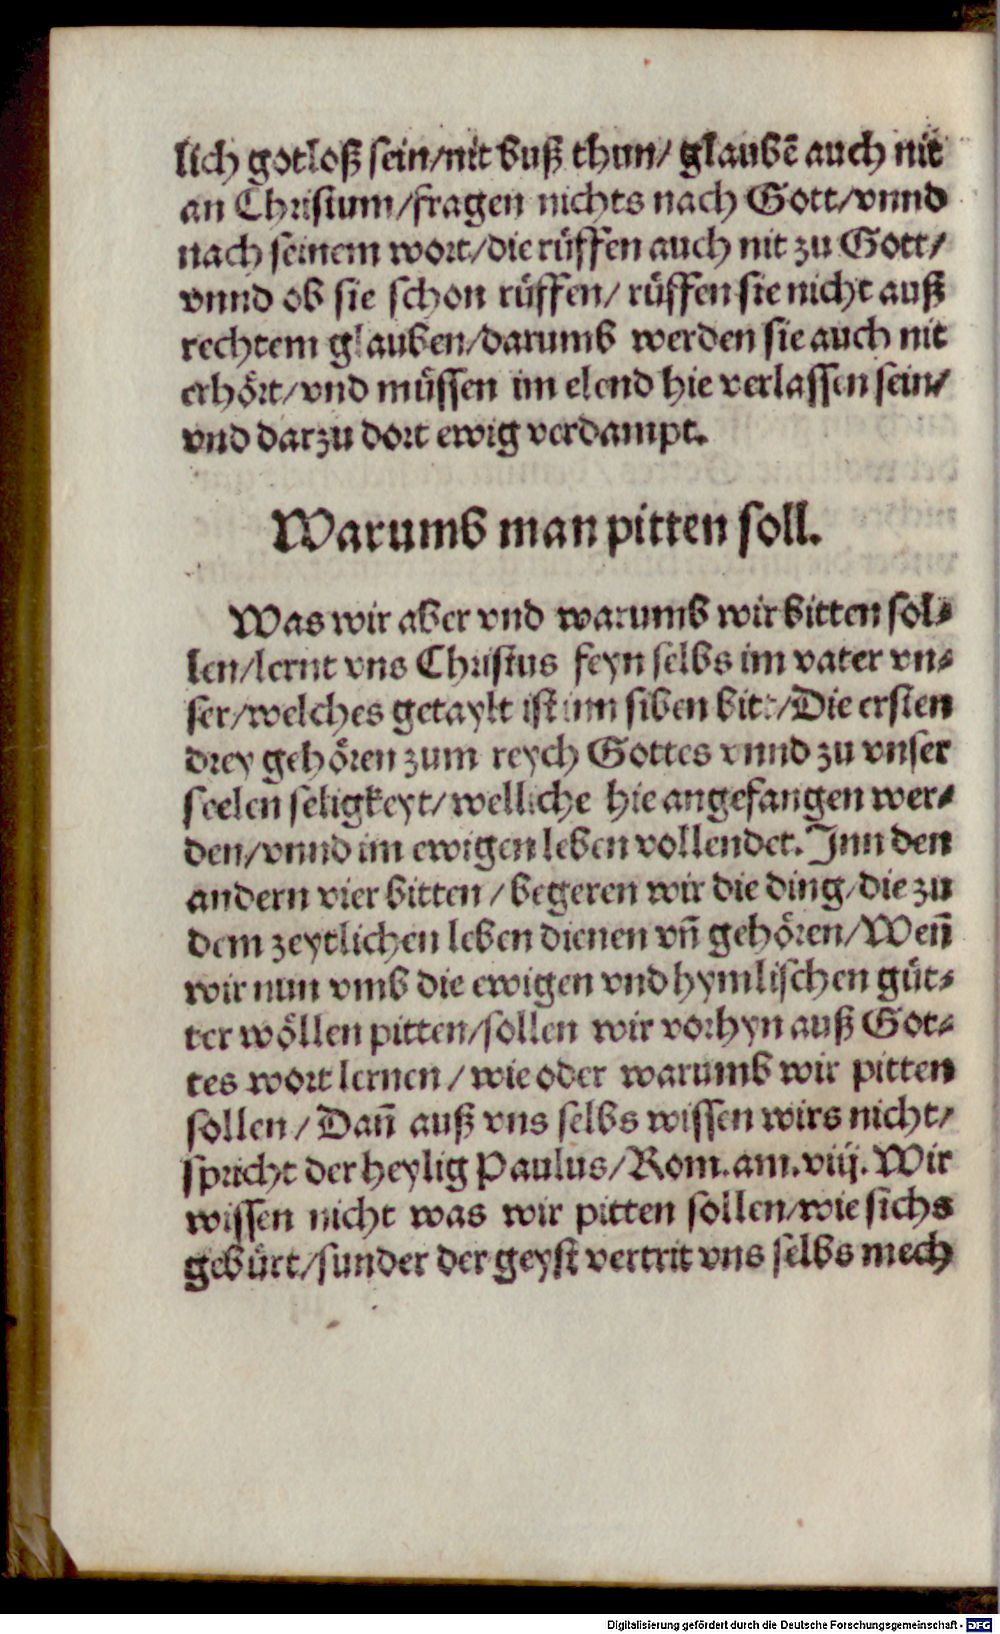 lich gotloß sein/nit buß thun/ glaubē auch nit
an Christum/fragen nichts nach Gott/vnnd
nach seinem wort/die rüffen auch nit zu Gott/
vnnd ob sie schon rüffen/ rüffen sie nicht auß
rechtem glauben/darumb werden sie auch nit
erhört/vnd müssen im elend hie verlassen sein/
vnd darzu dort ewig verdampt.
Warumb man pitten soll.
Was wir aber vnd warumb wir bitten sol⸗
len/lernt vns Christus feyn selbs im vater vn⸗
ser/welches getaylt ist inn siben bitt/Die ersten
drey gehören zum reych Gottes vnnd zu vnser
seelen seligkeyt/welliche hie angefangen wer⸗
den/vnnd im ewigen leben vollendet. Inn den
andern vier bitten/begeren wir die ding/die zu
dem zeytlichen leben dienen vn̄ gehören/Wen̄
wir nun vmb die ewigen vnd hymlischen güt⸗
ter wöllen pitten/sollen wir vorhyn auß Got⸗
tes wort lernen/wie oder warumb wir pitten
sollen/Dan̄ auß vns selbs wissen wirs nicht/
spricht der heylig Paulus/Rom.am.viij. Wir
wissen nicht was wir pitten sollen/wie sichs
gebürt/sunder der geyst vertrit vns selbs mech
Digitalisierung gefördert durch die Deutsche Forschungsgemeinschaft - DFG